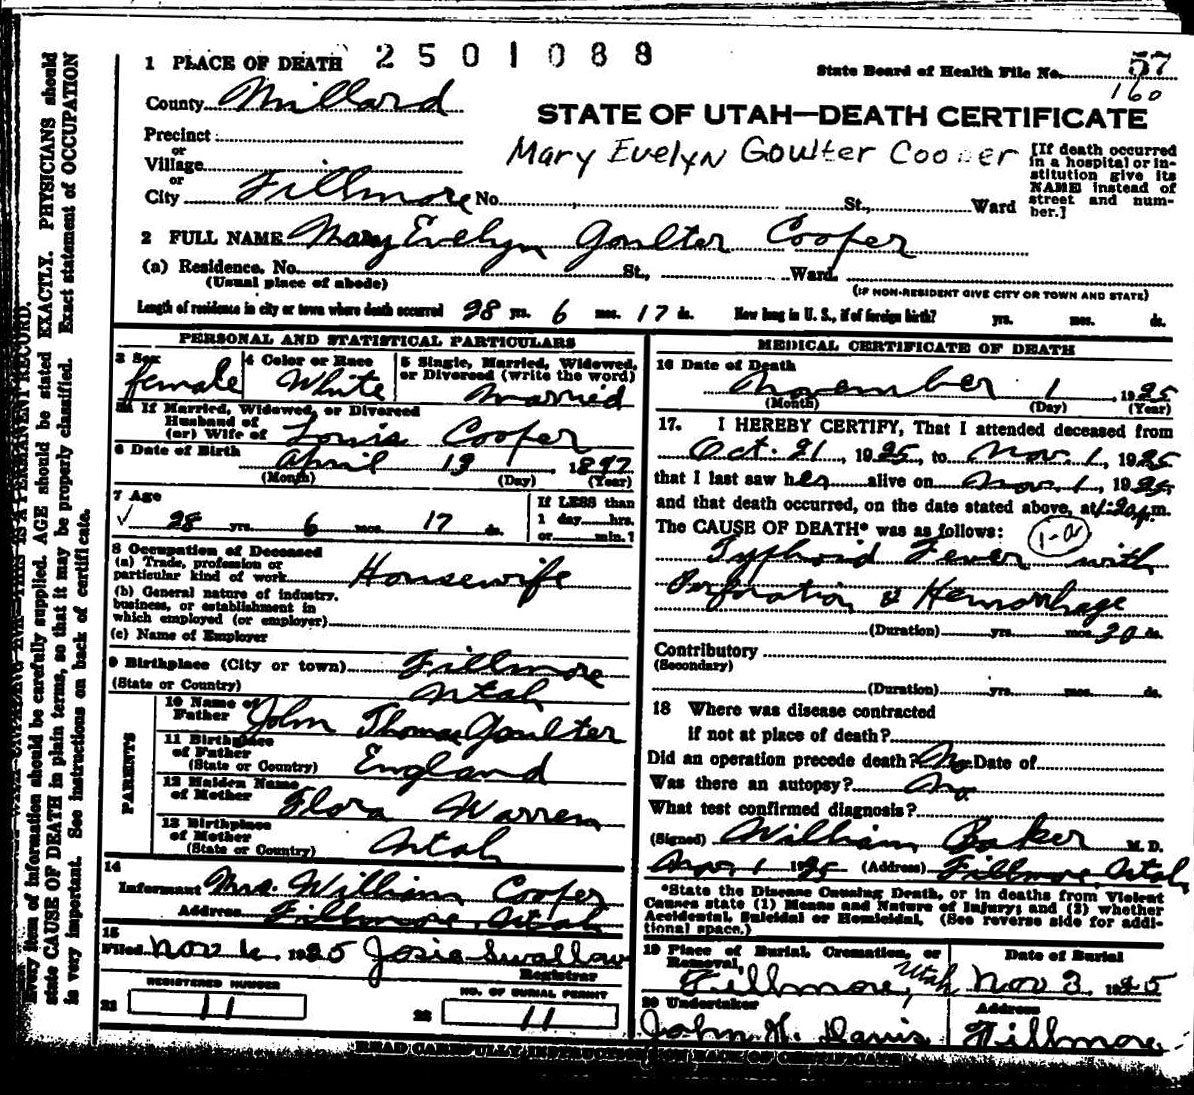 1 PLACE OF DEATH 2501088
State Board of Health File No. 57
160
County Millard
STATE OF UTAH—DEATH CERTIFICATE
Precinct
or
Village
or
City Fillmore No. St., Ward
Mary Evelyn Goulter Cooper
[If death occurred
in a hospital or in-
stitution give its
NAME instead of
street and num-
ber.]
2 FULL NAME Mary Evelyn Goulter Cooper
(a) Residence. No. St., Ward.
(Usual place of abode) (IF NON-RESIDENT GIVE CITY OR TOWN AND STATE)
Length of residence in city or town where death occurred 28 yrs. 6 mos. 17 ds. How long in U. S., if of foreign birth? yrs. mos. ds.
PERSONAL AND STATISTICAL PARTICULARS
3 Sex
female
4 Color or Race
White
5 Single, Married, Widowed,
or Divorced (write the word)
Married
5a If Married, Widowed, or Divorced
Husband of
(or) Wife of Louis Cooper
6 Date of Birth April 13, 1897
(Month) (Day) (Year)
7 Age
28 yrs. 6 mos. 17 ds.
If LESS than
1 day hrs.
or min.?
8 Occupation of Deceased
(a) Trade, profession or
particular kind of work Housewife
(b) General nature of industry,
business, or establishment in
which employed (or employer)
(c) Name of Employer
9 Birthplace (City or town) Fillmore
(State or Country) Utah
PARENTS
10 Name of
Father John Thomas Goulter
11 Birthplace
of Father
(State or Country) England
12 Maiden Name
of Mother Flora Warren
13 Birthplace
of Mother
(State or Country) Utah
14
Informant Mrs. William Cooper
Address Fillmore, Utah
15
Filed Nov 6 1925 Josie Swallow
Registrar
REGISTERED NUMBER
21 11
NO. OF BURIAL PERMIT
22 11
MEDICAL CERTIFICATE OF DEATH
16 Date of Death
November 1, 1925
(Month) (Day) (Year)
17. I HEREBY CERTIFY, That I attended deceased from
Oct. 21, 1925, to Nov. 1, 1925
that I last saw her alive on Nov. 1, 1925
and that death occurred, on the date stated above, at 1:20 p.m.
The CAUSE OF DEATH* was as follows: 1-a
Typhoid Fever with
Perforation & Hemorrhage
(Duration) yrs. mos. 20 ds.
Contributory
(Secondary)
(Duration) yrs. mos. ds.
18 Where was disease contracted
if not at place of death?
Did an operation precede death? No. Date of
Was there an autopsy? No.
What test confirmed diagnosis?
(Signed) William Baker M. D.
Nov 1 1925 (Address) Fillmore, Utah
*State the Disease Causing Death, or in deaths from Violent
Causes state (1) Means and Nature of Injury; and (2) whether
Accidental, Suicidal or Homicidal. (See reverse side for addi-
tional space.)
19 Place of Burial, Cremation, or
Removal,
Fillmore, Utah
Date of Burial
Nov 3 1925
20 Undertaker
John H. Davis
Address
Fillmore
READ CAREFULLY INSTRUCTIONS ON BACK OF CERTIFICATE
THIS IS A PERMANENT RECORD.
Every item of information should be carefully supplied. AGE should be stated EXACTLY. PHYSICIANS should
state CAUSE OF DEATH in plain terms, so that it may be properly classified. Exact statement of OCCUPATION
is very important. See instructions on back of certificate.